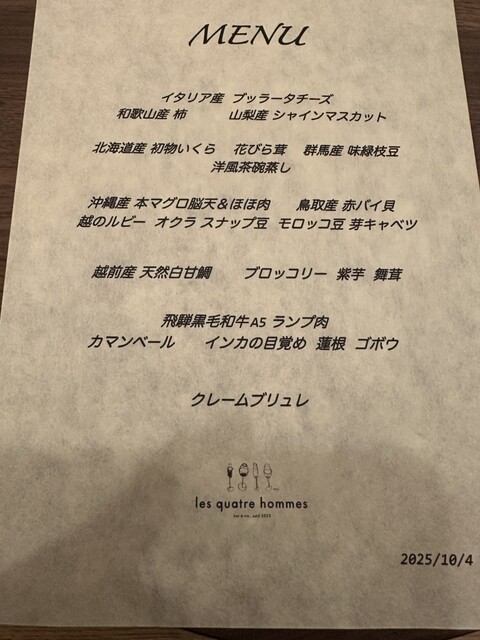 MENU
イタリア産 ブッラータチーズ
和歌山産 柿 山梨産 シャインマスカット
北海道産 初物いくら 花びら茸 群馬産 味緑枝豆
洋風茶碗蒸し
沖縄産 本マグロ脳天＆ほほ肉 鳥取産 赤バイ貝
越のルビー オクラ スナップ豆 モロッコ豆 芽キャベツ
越前産 天然白甘鯛 ブロッコリー 紫芋 舞茸
飛騨黒毛和牛A5 ランプ肉
カマンベール インカの目覚め 蓮根 ゴボウ
クレームブリュレ
les quatre hommes
2025/10/4